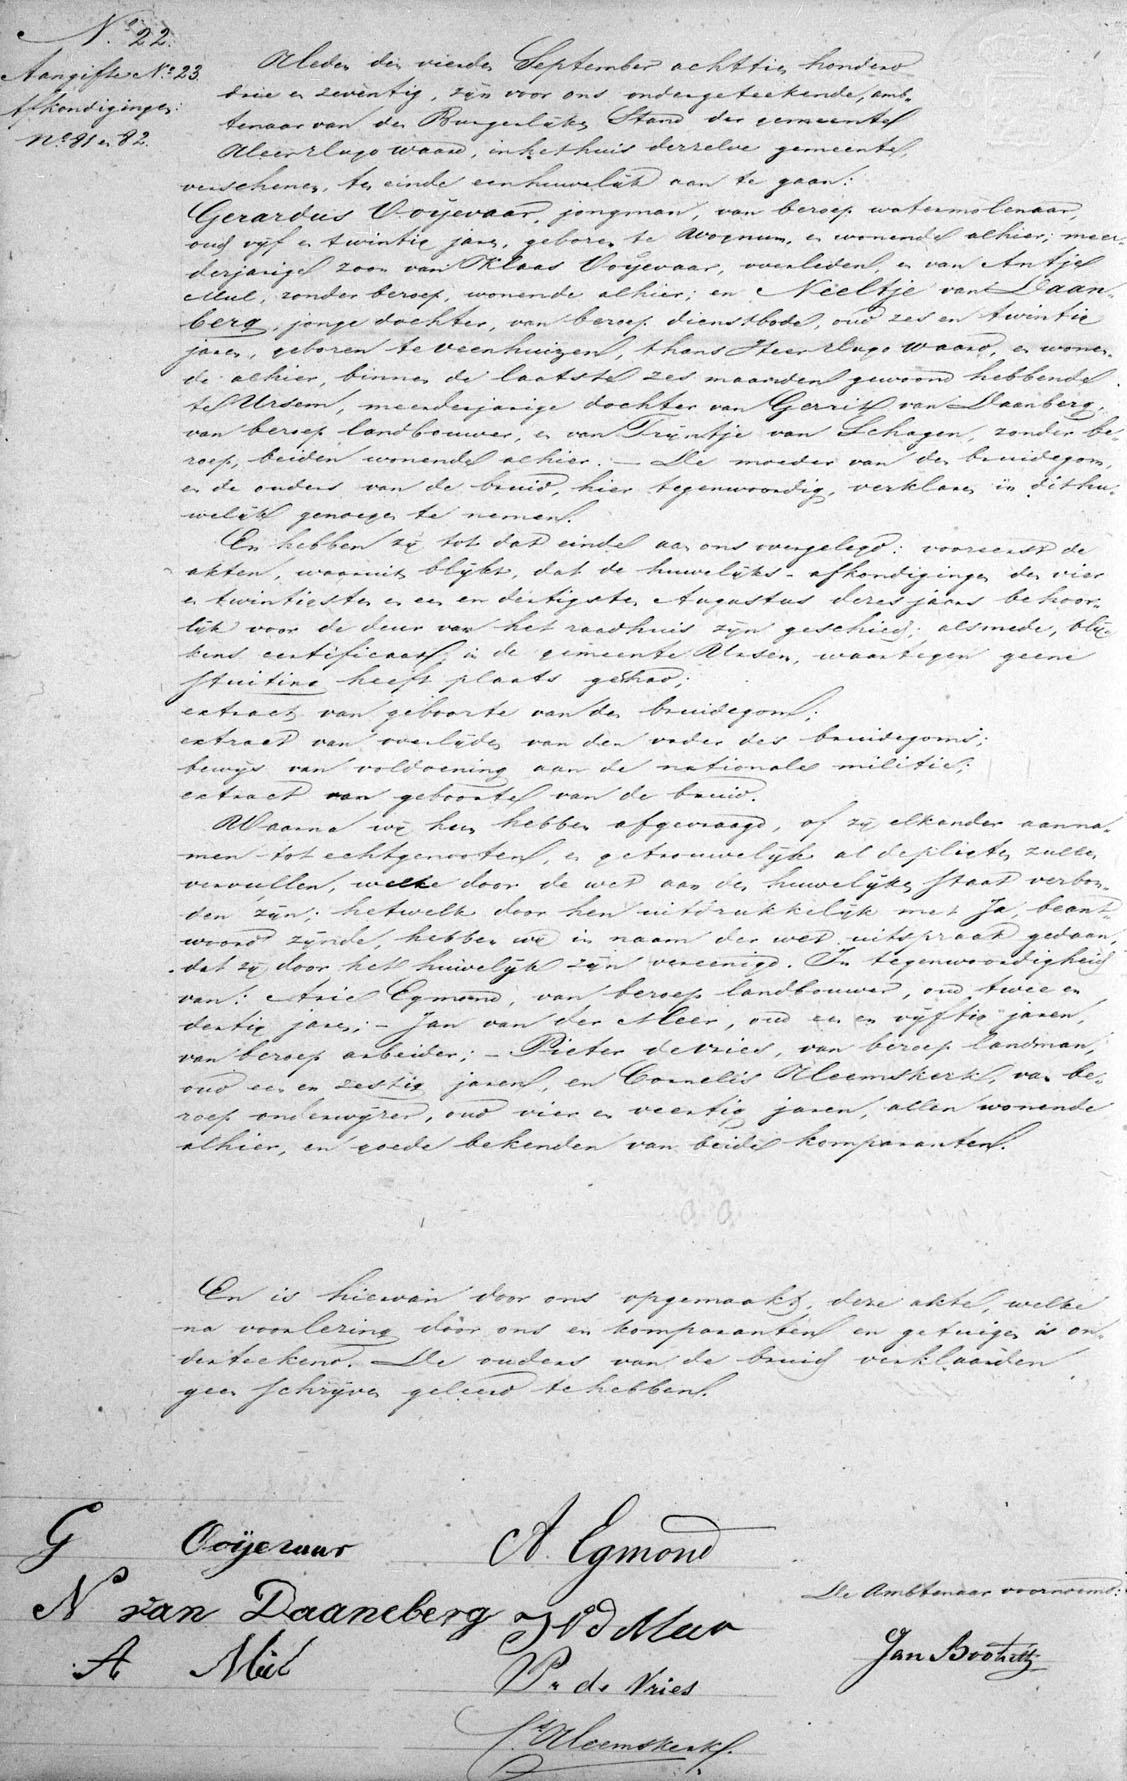 No. 22.
Aangifte No. 23.
Afkondigingen:
No. 81 en 82.
Heden den vierden September achttien honderd
drie en zeventig, zijn voor ons ondergeteekende, amb-
tenaar van den Burgerlijken Stand der gemeente
Heer Hugo waard, in het huis derzelve gemeente,
verschenen, ten einde een huwelijk aan te gaan:
Gerardus Ooijevaar, jongman, van beroep watermolenaar,
oud vijf en twintig jaren, geboren te Wognum, en wonende alhier; meer-
derjarige zoon van Klaas Ooijevaar, overleden, en van Antje
Mul, zonder beroep, wonende alhier; en Neeltje van Daan-
berg, jonge dochter, van beroep dienstbode, oud zes en twintig
jaren, geboren te Veenhuizen, thans Heer Hugo waard, en wonen-
de alhier, binnen de laatste zes maanden gewoond hebbende
te Ursem, meerderjarige dochter van Gerrit van Daanberg,
van beroep landbouwer, en van Trijntje van Schagen, zonder be-
roep, beiden wonende alhier. – De moeder van den bruidegom,
en de ouders van de bruid, hier tegenwoordig, verklaren in dit hu-
welijk genoegen te nemen.
En hebben zij tot dat einde aan ons overgelegd: vooreerst de
akten, waaruit blijkt, dat de huwelijks-afkondigingen den vier
en twintigsten en een en dertigsten Augustus dezes jaars behoor-
lijk voor de deur van het raadhuis zijn geschied; alsmede, blij-
kens certificaat, in de gemeente Ursem, waartegen geene
stuiting heeft plaats gehad;
extract van geboorte van den bruidegom;
extract van overlijden van den vader des bruidegoms;
bewijs van voldoening aan de nationale militie;
extract van geboorte van de bruid.
Waarna wij hun hebben afgevraagd, of zij elkander aanna-
men tot echtgenooten, en getrouwelijk al de pligten zullen
vervullen, welke door de wet aan den huwelijken staat verbon-
den zijn; hetwelk door hen uitdrukkelijk met Ja, beant-
woord zijnde, hebben wij in naam der wet uitspraak gedaan,
dat zij door het huwelijk zijn vereenigd. In tegenwoordigheid
van: Arie Egmond, van beroep landbouwer, oud twee en
dertig jaren; – Jan van der Meer, oud een en vijftig jaren,
van beroep arbeider; – Pieter de Vries, van beroep landman,
oud een en zestig jaren, en Cornelis Heemskerk, van be-
roep onderwijzer, oud vier en veertig jaren, allen wonende
alhier, en goede bekenden van beide komparanten.
En is hiervan door ons opgemaakt, deze akte, welke
na voorlezing door ons en komparanten en getuigen is on-
derteekend. De ouders van de bruid verklaarden
geen schrijven geleerd te hebben.
G Ooijevaar
A. Egmond
De Ambtenaar voornoemd:
N van Daaneberg
J v d Meer
A Mul
Jan Bootsz
Pr de Vries
Cs Heemskerk.